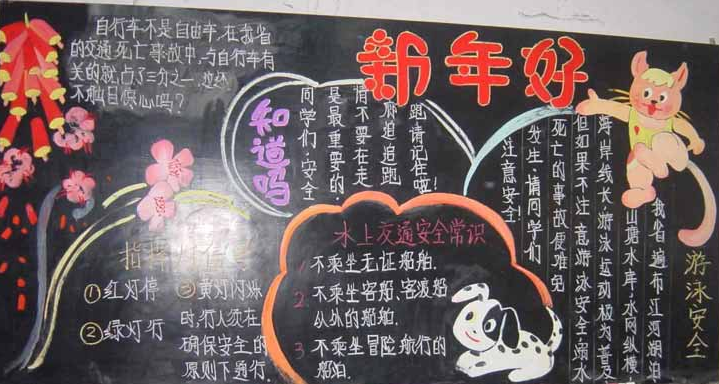 自行车不是自由车,在我省
的交通死亡事故中,与自行车有
关的就占了三分之一,这还
不触目惊心吗?
新年好
知道吗
同学们,安全
是最重要的.
情不要在走
廊追追跑
跑请记住哦!
指挥灯信号
①红灯停
②绿灯行
③黄灯闪烁
时,行人须在
确保安全的
原则下通行.
水上交通安全常识
1 不乘坐无证船舶.
2 不乘坐客船、客渡船
以外的船舶.
3 不乘坐冒险航行的
船舶.
游泳安全
我省遍布江河湖泊
山塘水库,水网纵横
海岸线长,游泳运动极为普及
但如果不注意游泳安全,溺水
死亡的事故便难免
发生.请同学们
注意安全!